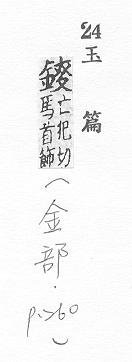 24 玉篇
錽 亡犯切
馬首飾
(金部·p.260)